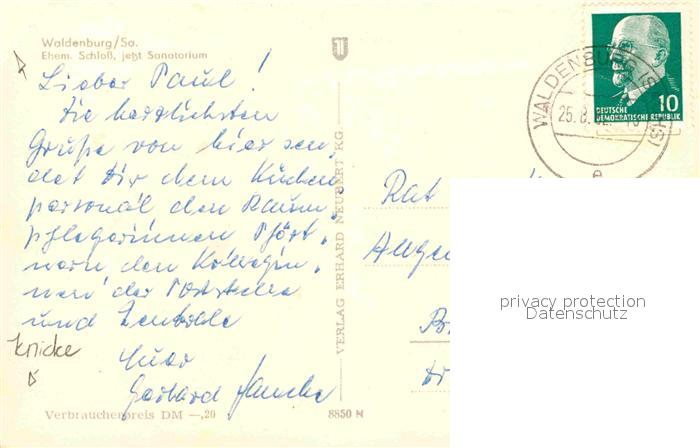 Waldenburg/Sa.
Ehem. Schloß, jetzt Sanatorium
Lieber Paul!
Die herzlichsten
Grüße von hier sen,
det Dir dem Küchen,
personal den Raum,
pflegerinnen Pfört,
nern den Kollegin,
nen der Poststelle
und Zentrale
Euer
Gerhard
knicke
Verbraucherpreis DM —,20
8850 N
VERLAG ERHARD NEUBERT KG.
WALDENBURG (SACHS)
25.8.
10
DEUTSCHE
DEMOKRATISCHE REPUBLIK
Rat
Ange
privacy protection
Datenschutz